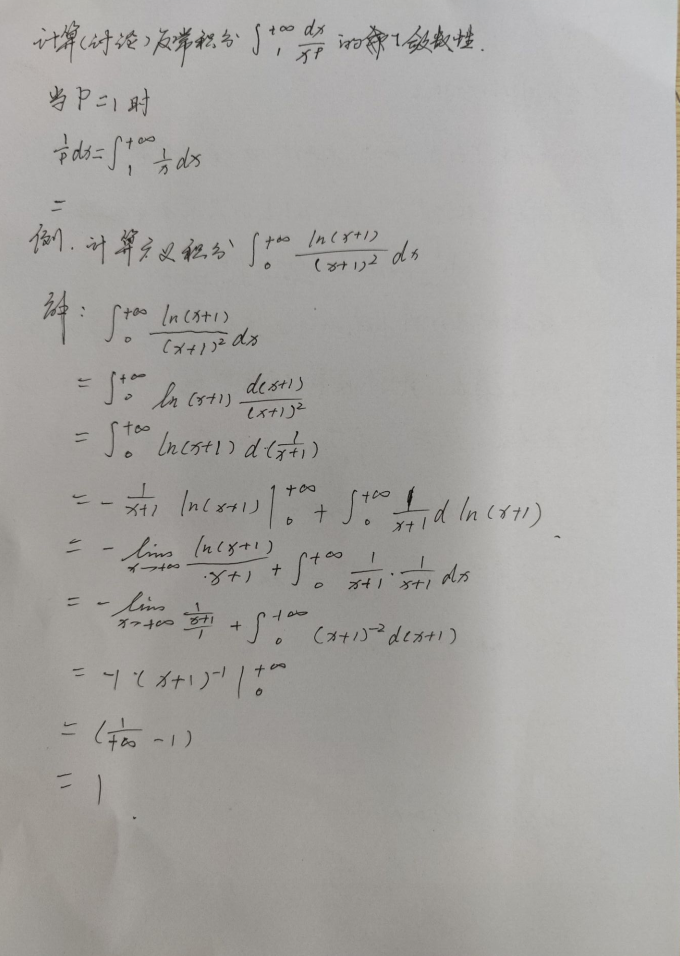 计算(讨论)反常积分 ∫₁^{+∞} dx/x^p 的 敛散性.
当 P=1 时
1/p dx = ∫₁^{+∞} 1/x dx
=
例. 计算定义积分 ∫₀^{+∞} ln(x+1)/(x+1)² dx
解: ∫₀^{+∞} ln(x+1)/(x+1)² dx
= ∫₀^{+∞} ln(x+1) d(x+1)/(x+1)²
= ∫₀^{+∞} ln(x+1) d(1/(x+1))
= - 1/(x+1) ln(x+1) |₀^{+∞} + ∫₀^{+∞} 1/(x+1) d ln(x+1).
= - lim_{x→+∞} ln(x+1)/(x+1) + ∫₀^{+∞} 1/(x+1) · 1/(x+1) dx
= - lim_{x→+∞} (1/(x+1))/1 + ∫₀^{+∞} (x+1)⁻² d(x+1)
= -1·(x+1)⁻¹ |₀^{+∞}
= (1/+∞ - 1)
= 1.